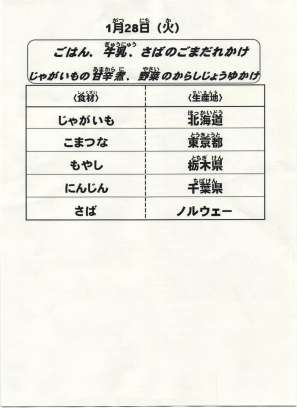 1月28日（火）
ごはん、牛乳、さばのごまだれかけ
じゃがいもの甘辛煮、野菜のからしじょうゆかけ
〈食材〉 〈生産地〉
じゃがいも 北海道
こまつな 東京都
もやし 栃木県
にんじん 千葉県
さば ノルウェー